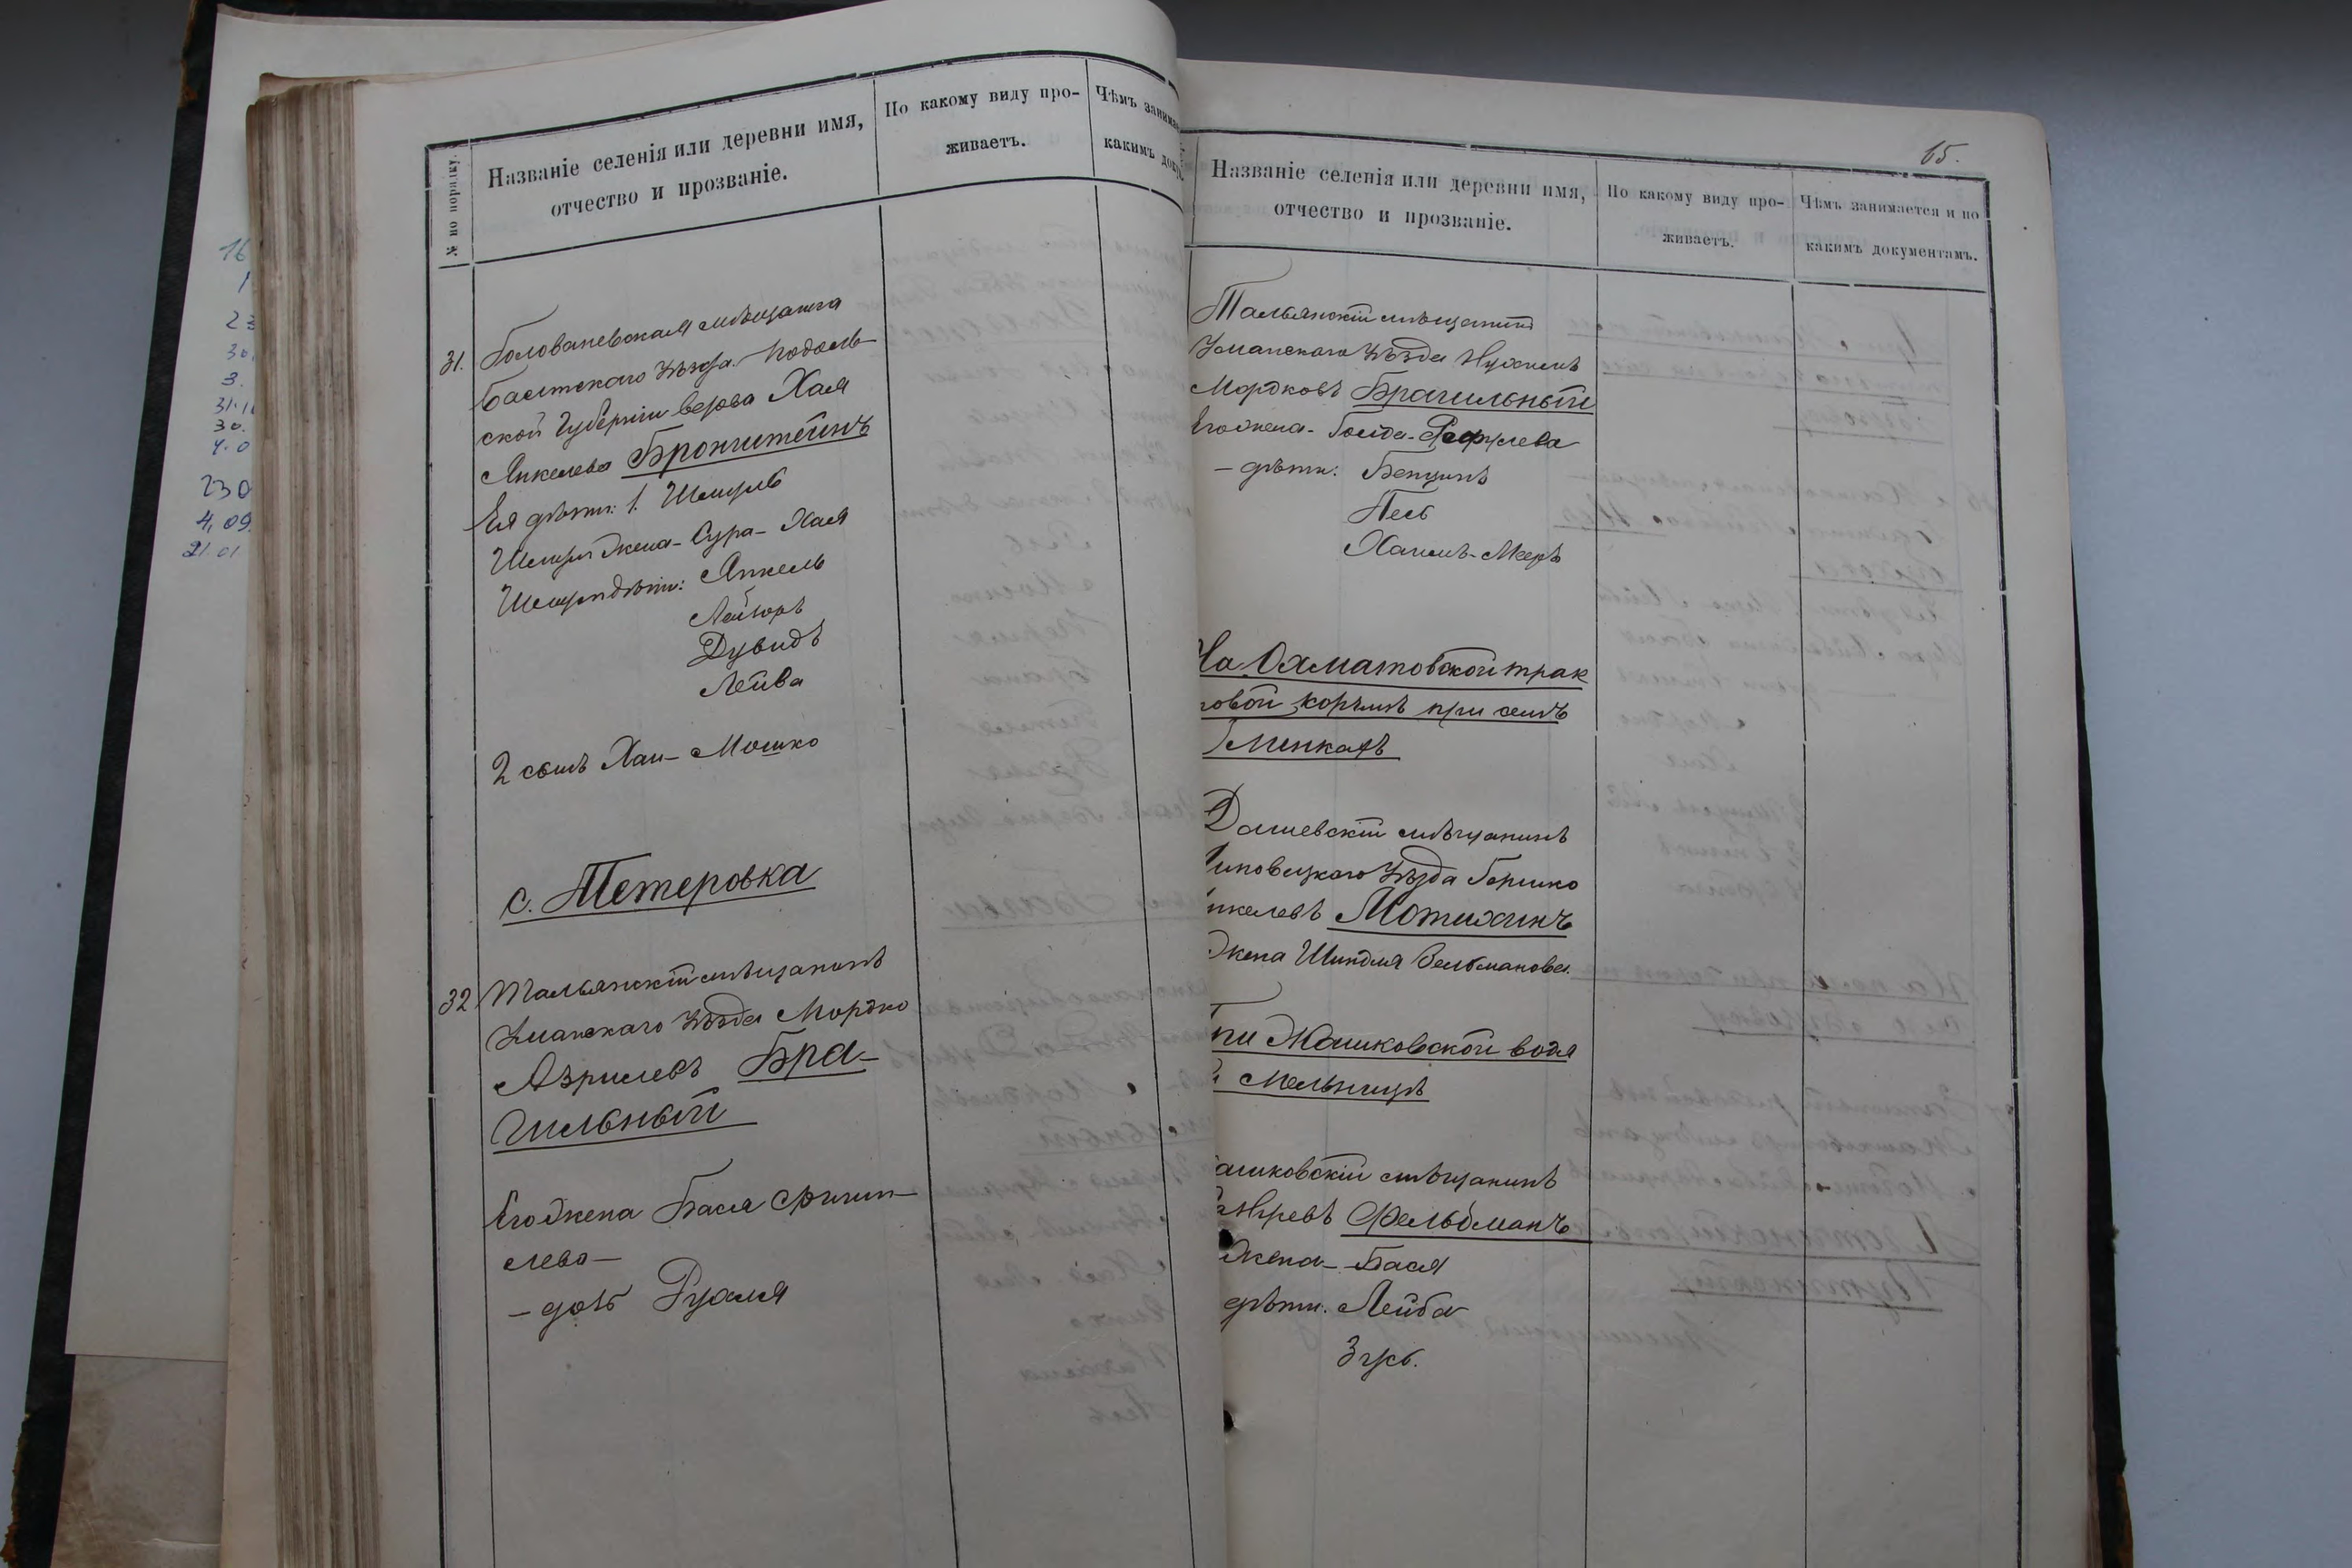 № по порядку.
Названіе селенія или деревни имя,
отчество и прозваніе.
По какому виду про-
живаетъ.
Чѣмъ
какимъ
31. Голованевская мѣщанка
Балтскаго уѣзда Подоль-
ской губерніи вдова Хая
Янкелева Бронштейнъ
Ея дѣти: 1. Шмуль
Шмуля жена - Сура - Хая
Шмуля дѣти: Янкель
Лейзоръ
Дувидъ
Лейба
2 сынъ Хаи - Мошко
с. Тетеровка
32 Тальянскій мѣщанинъ
Уманскаго уѣзда Мордко
Азрилевъ Бра-
гильный
Его жена Бася Фиши-
лева -
- дочь Рухля
65.
Названіе селенія или деревни имя,
отчество и прозваніе.
По какому виду про-
живаетъ.
Чѣмъ занимается и по
какимъ документамъ.
Тальянскій мѣщанинъ
Уманскаго уѣзда Нухимъ
Мордковъ Брагильный
Его жена - Голда -
- дѣти: Бенціонъ
Песь
Хаимъ - Мееръ
На Охматовской трак
товой корчмѣ при селѣ
Дашевскій мѣщанинъ
Липовецкаго уѣзда Гершко
Янкелевъ Мотихинъ
жена Шиндля Вельмановва
При Жашковской водя
мельницѣ
Жашковскій мѣщанинъ
Фельдманъ
жена - Бася
дѣти. Лейба